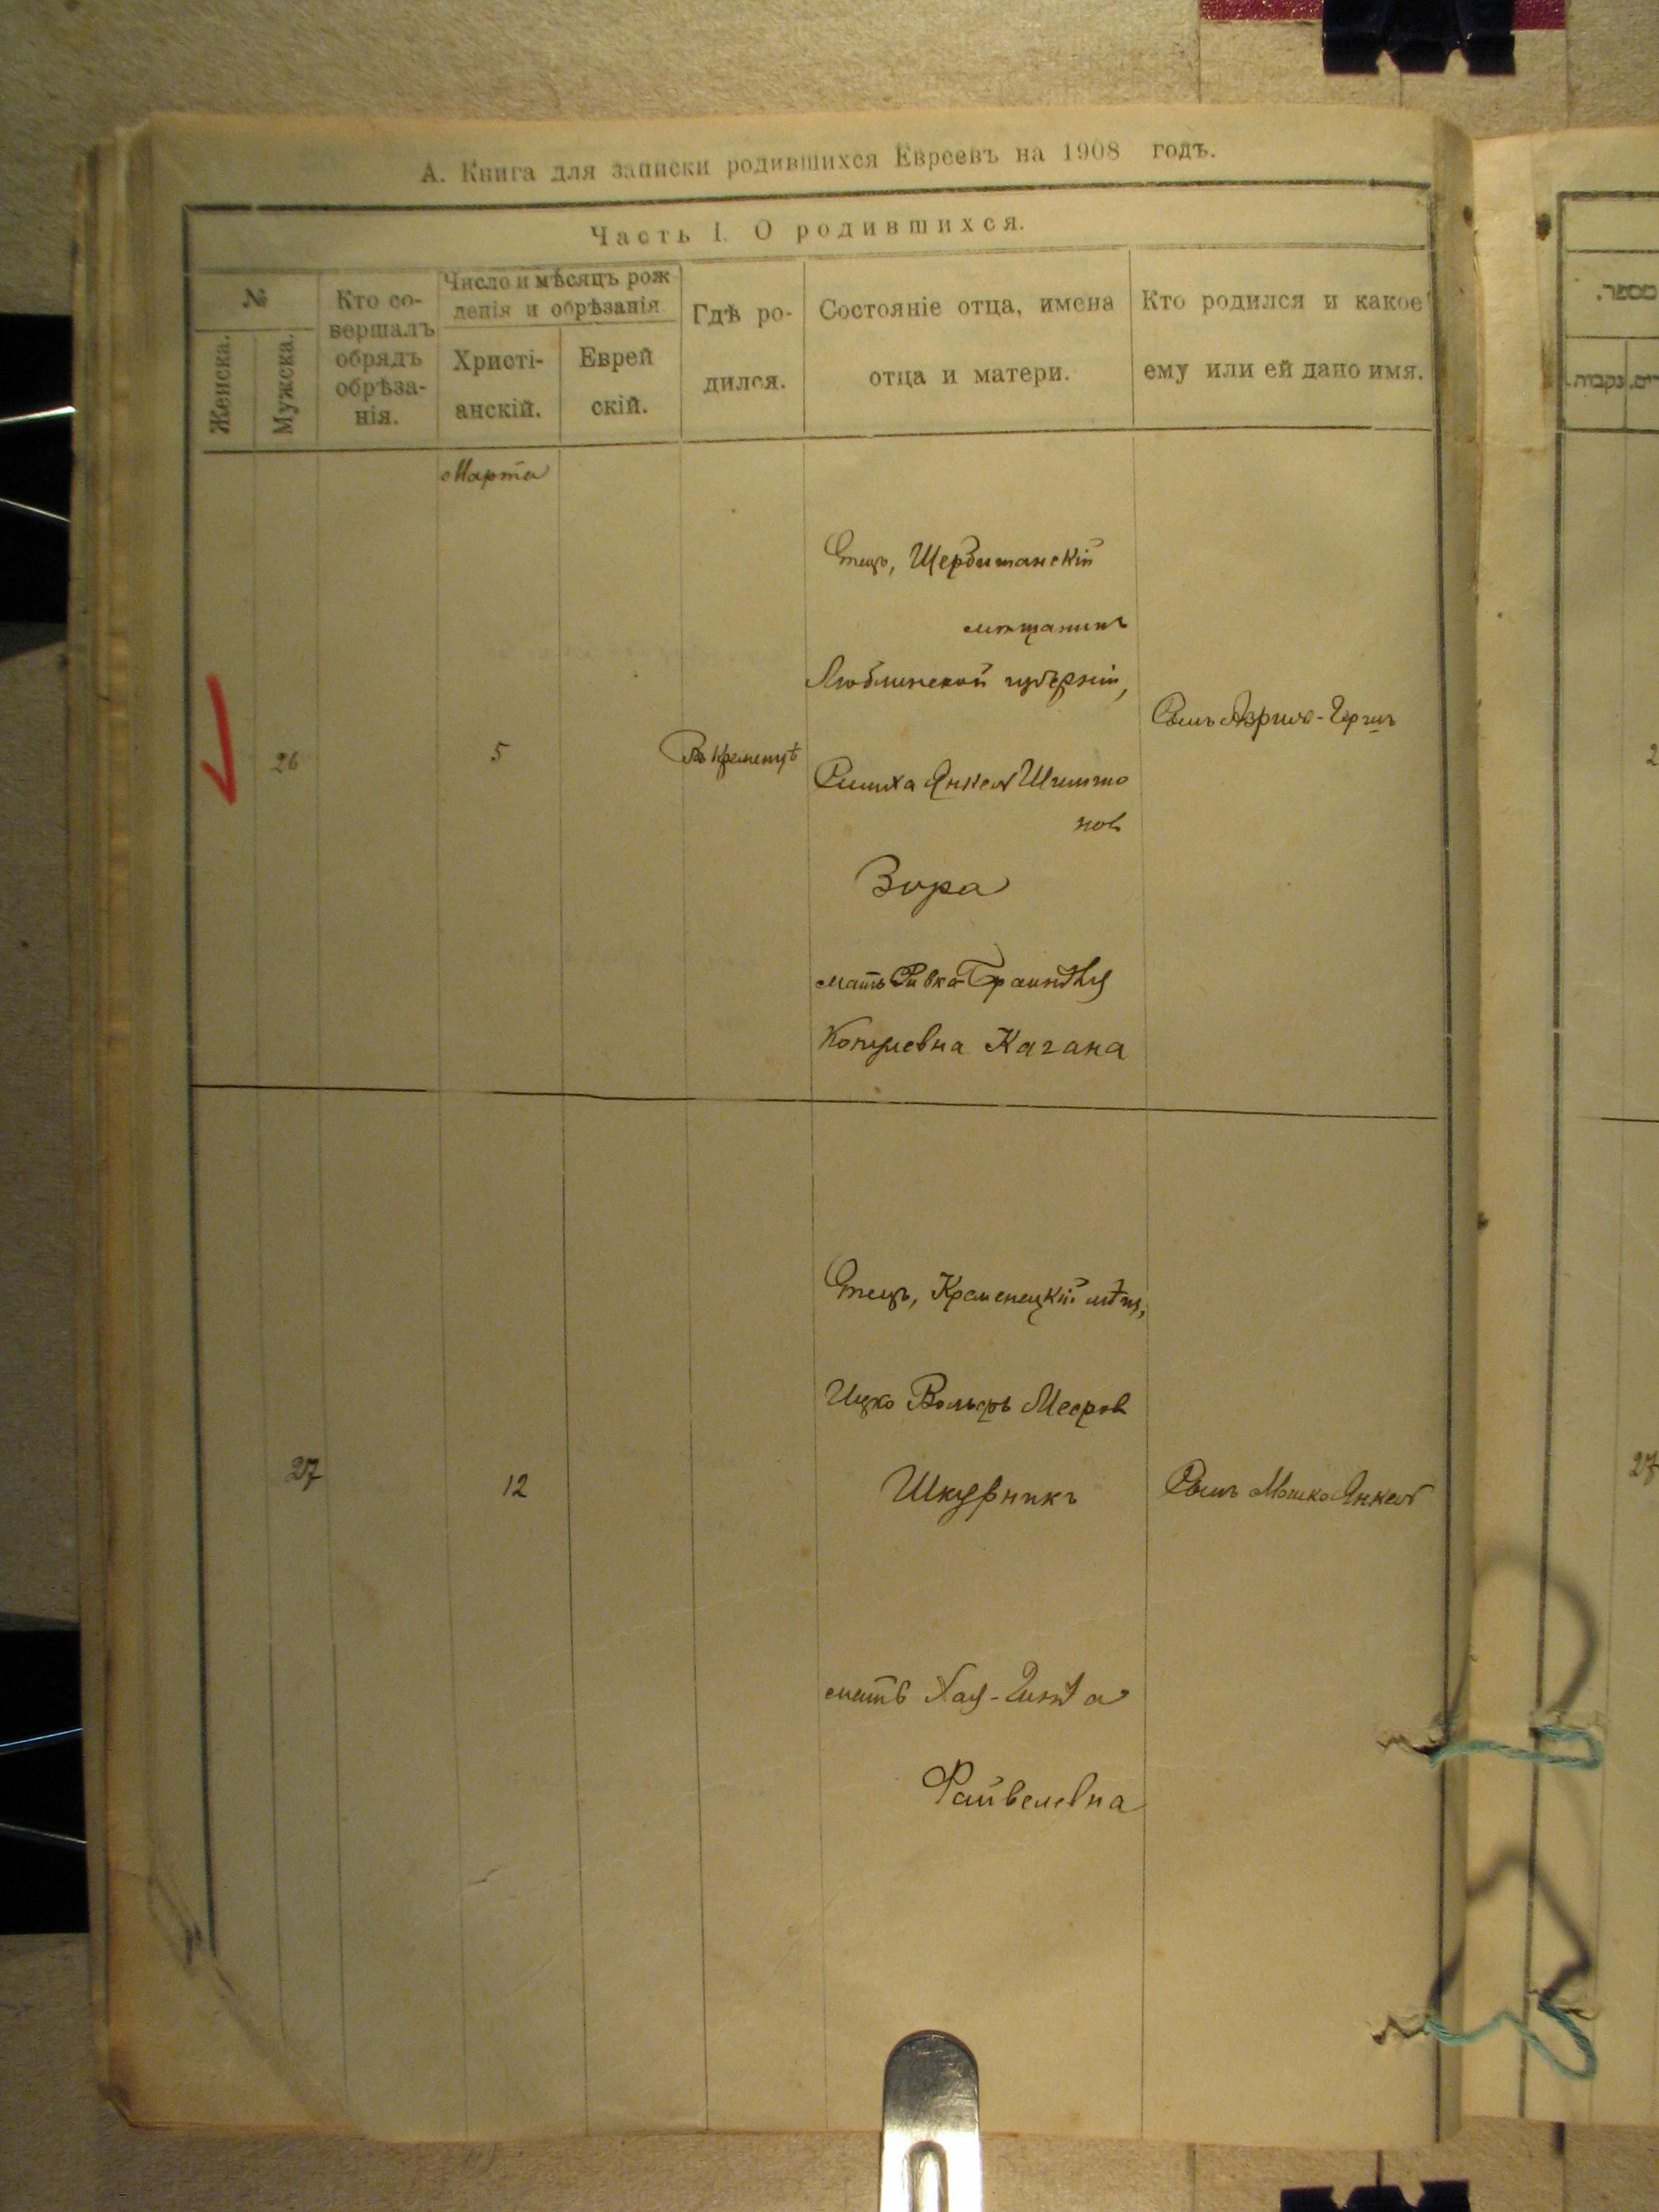 А. Книга для записки родившихся Евреевъ на 1908 годъ.
Часть I. О родившихся.
№
Женска.
Мужска.
Кто со-
вершалъ
обрядъ
обрѣза-
нія.
Число и мѣсяцъ рож
денія и обрѣзанія
Христі-
анскій.
Еврей
скій.
Гдѣ ро-
дился.
Состояніе отца, имена
отца и матери.
Кто родился и какое
ему или ей дано имя.
Марта
26
5
Въ Кременцѣ
Отецъ,
мѣщанинъ
Люблинской губерніи,
Янкель
нов
Зора
мать Ривка-Браиндля
Кагана
Сынъ
27
12
Отецъ, Кременецкій мѣщ,
Ицко Вольфъ Мееров
Шкурникъ
мать Хая-Гинда
Файвелевна
Сынъ Мошко Янкель
מספר.
נקבות.
27